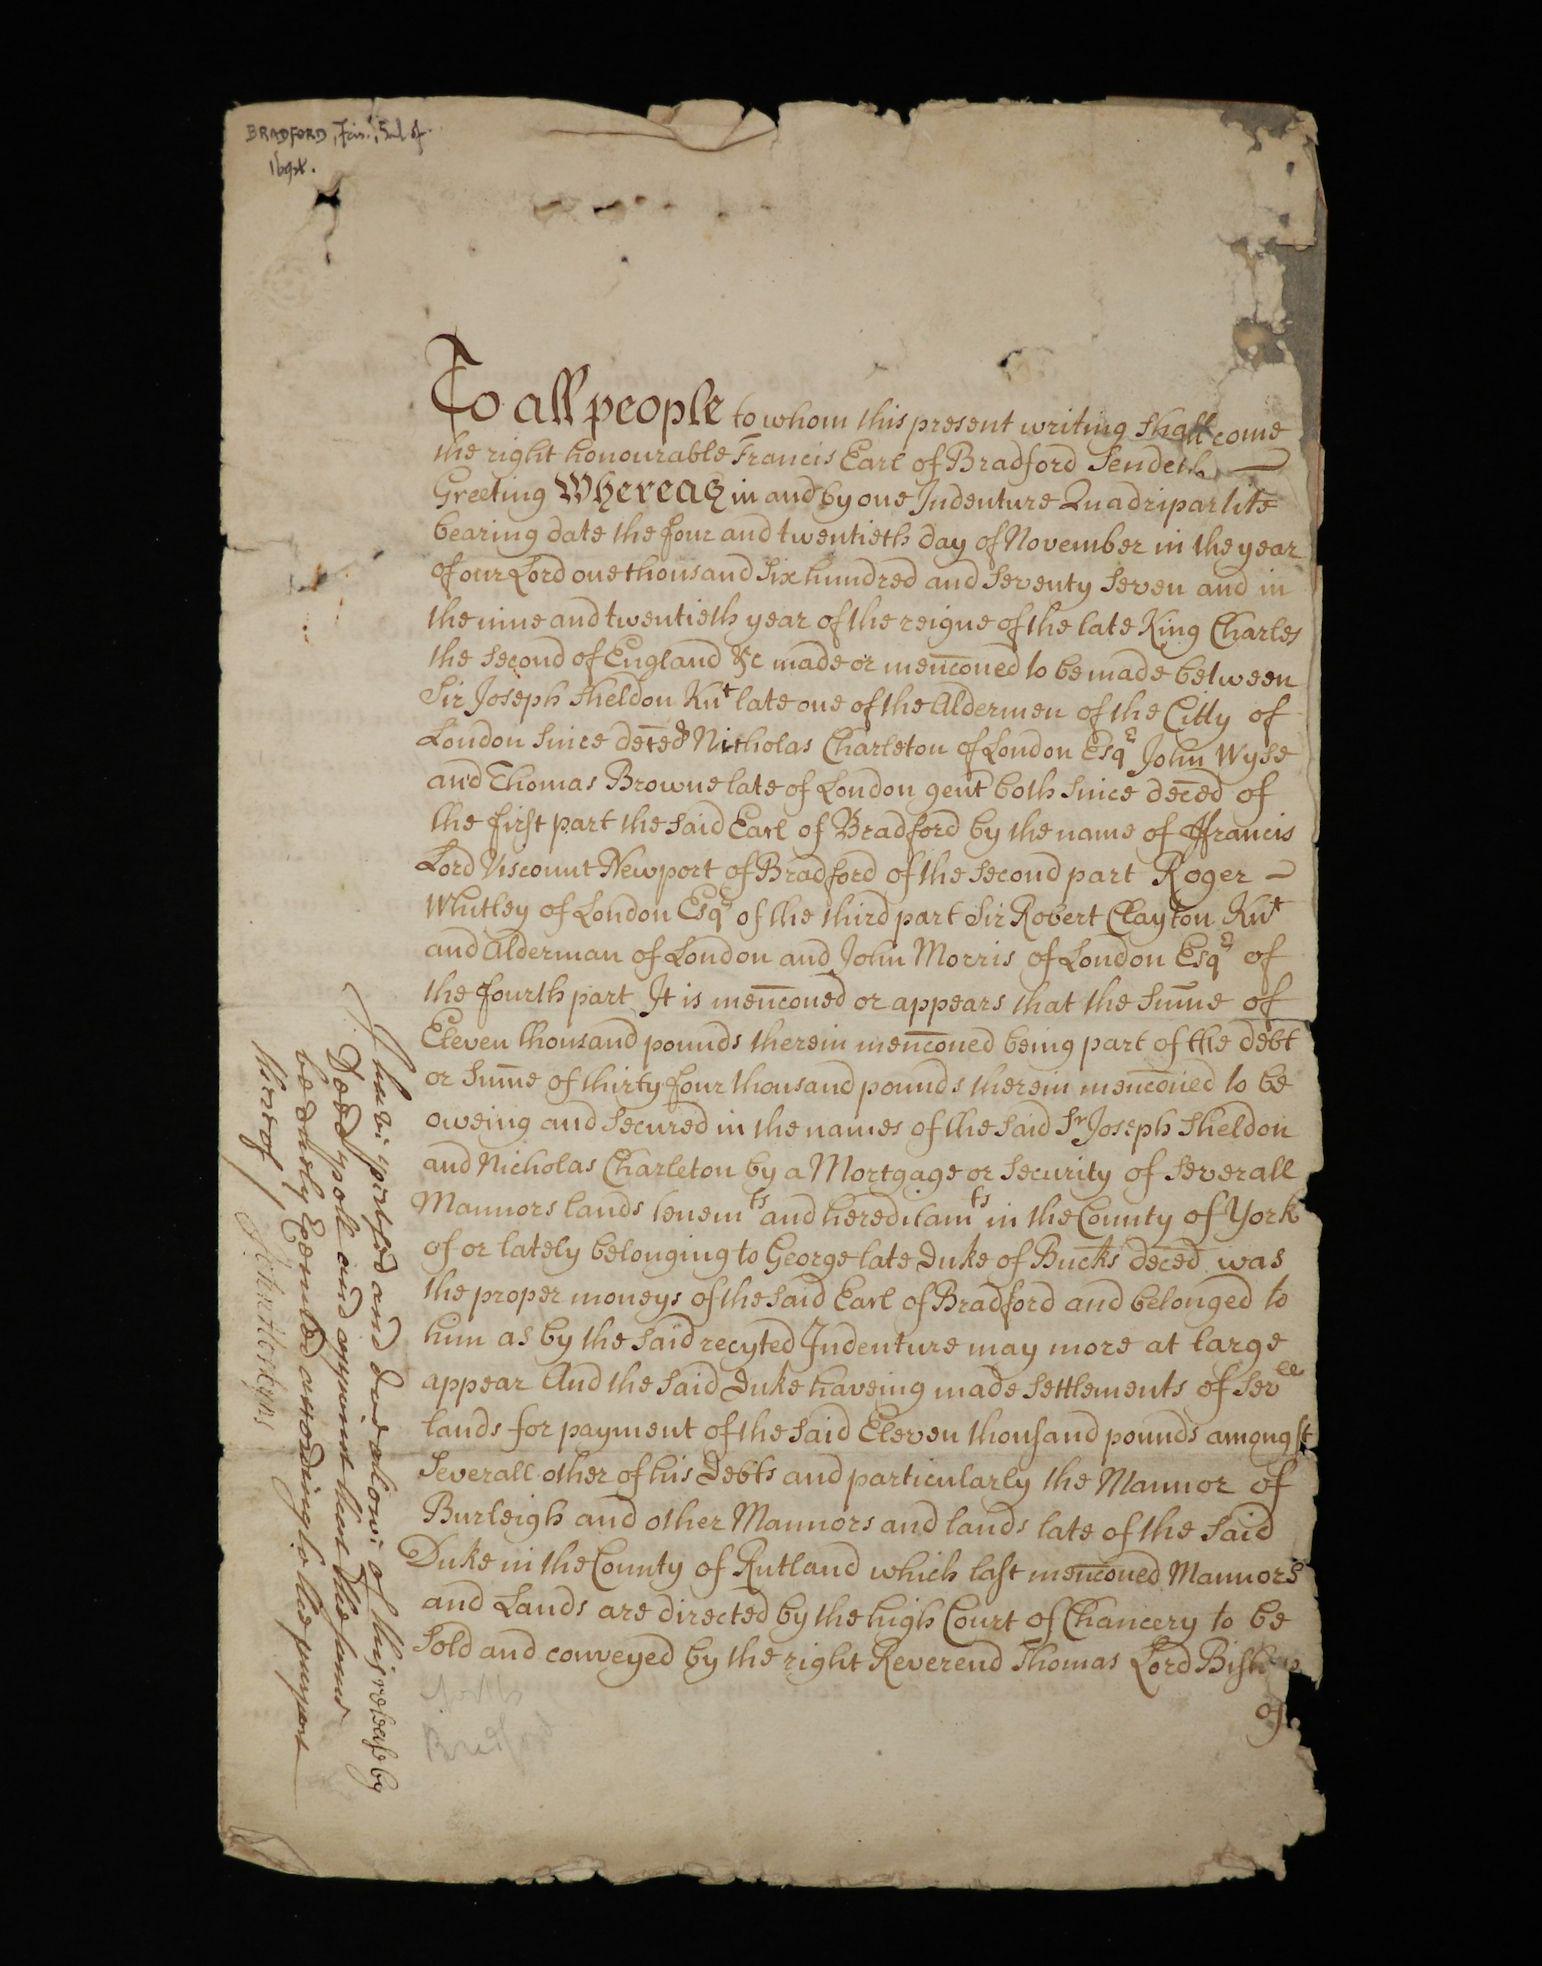 BRADFORD, Earl of
To all people to whom this present writing shall come
the right honourable Francis Earl of Bradford Sendeth
Greeting Whereas in and by one Indenture Quadripartite
bearing date the four and twentieth day of November in the year
of our Lord one thousand Six hundred and Seventy Seven and in
the nine and twentieth year of the reigne of the late King Charles
the Second of England &c made or menconed to be made between
Sir Joseph Sheldon Knt late one of the Aldermen of the Citty of
London Since deced Nicholas Charleton of London Esqr John Wyse
and Thomas Browne late of London gent both Since deced of
the first part the said Earl of Bradford by the name of ffrancis
Lord Viscount Newport of Bradford of the Second part Roger
Whitley of London Esqr of the third part Sir Robert Clayton Knt
and Alderman of London and John Morris of London Esqr of
the fourth part It is menconed or appears that the Sume of
Eleven thousand pounds therein menconed being part of the debt
or Sume of thirty four thousand pounds therein menconed to be
oweing and Secured in the names of the Said Sr Joseph Sheldon
and Nicholas Charleton by a Mortgage or Security of Severall
Mannors lands tenemts and hereditamts in the County of York
of or lately belonging to George late Duke of Bucks deced was
the proper moneys of the said Earl of Bradford and belonged to
him as by the Said recyted Indenture may more at large
appear And the Said Duke haveing made Settlements of Sevll
lands for payment of the Said Eleven thousand pounds amongst
Severall other of his Debts and particularly the Mannor of
Burleigh and other Mannors and lands late of the Said
Duke in the County of Rutland which last menconed Mannors
and Lands are directed by the high Court of Chancery to be
Sold and conveyed by the right Reverend Thomas Lord Bishop
of
I have perused and doe allow of this release by
Deed poll and approve that the same
be duely Executed according to the purport
thereof
John Hoskyns
Bradford